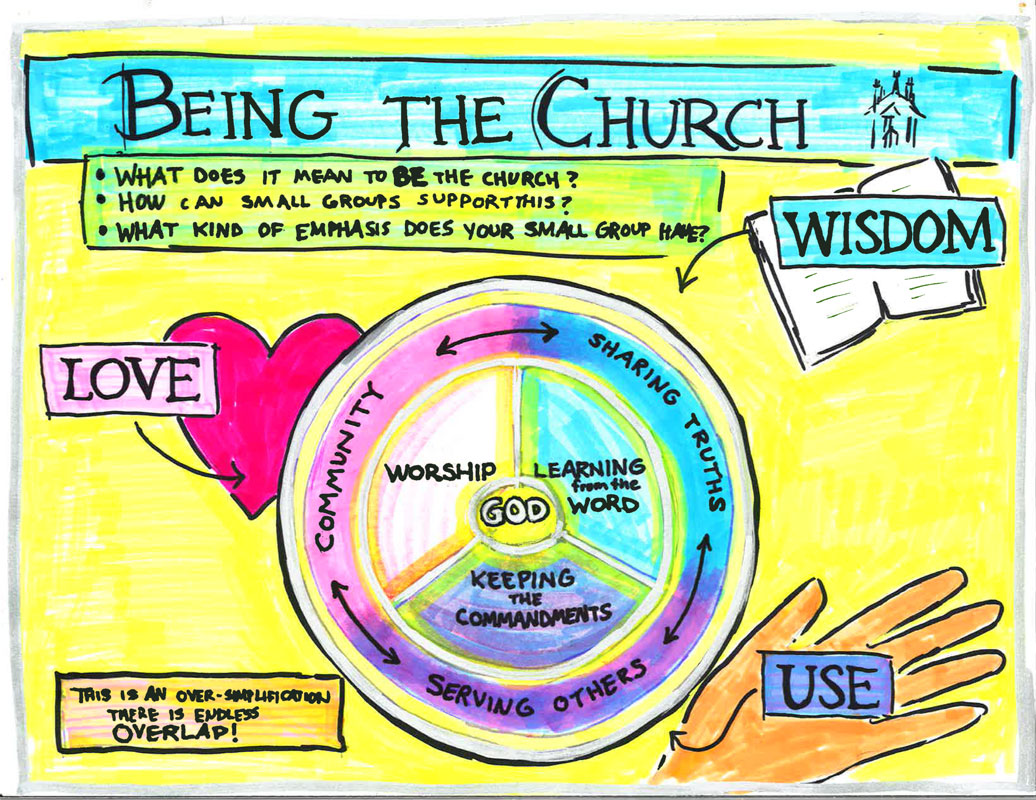 BEING THE CHURCH
• WHAT DOES IT MEAN TO BE THE CHURCH?
• HOW CAN SMALL GROUPS SUPPORT THIS?
• WHAT KIND OF EMPHASIS DOES YOUR SMALL GROUP HAVE?
WISDOM
LOVE
COMMUNITY
SHARING TRUTHS
WORSHIP
LEARNING
from the
WORD
GOD
KEEPING
THE
COMMANDMENTS
SERVING OTHERS
USE
THIS IS AN OVER-SIMPLIFICATION
THERE IS ENDLESS
OVERLAP!